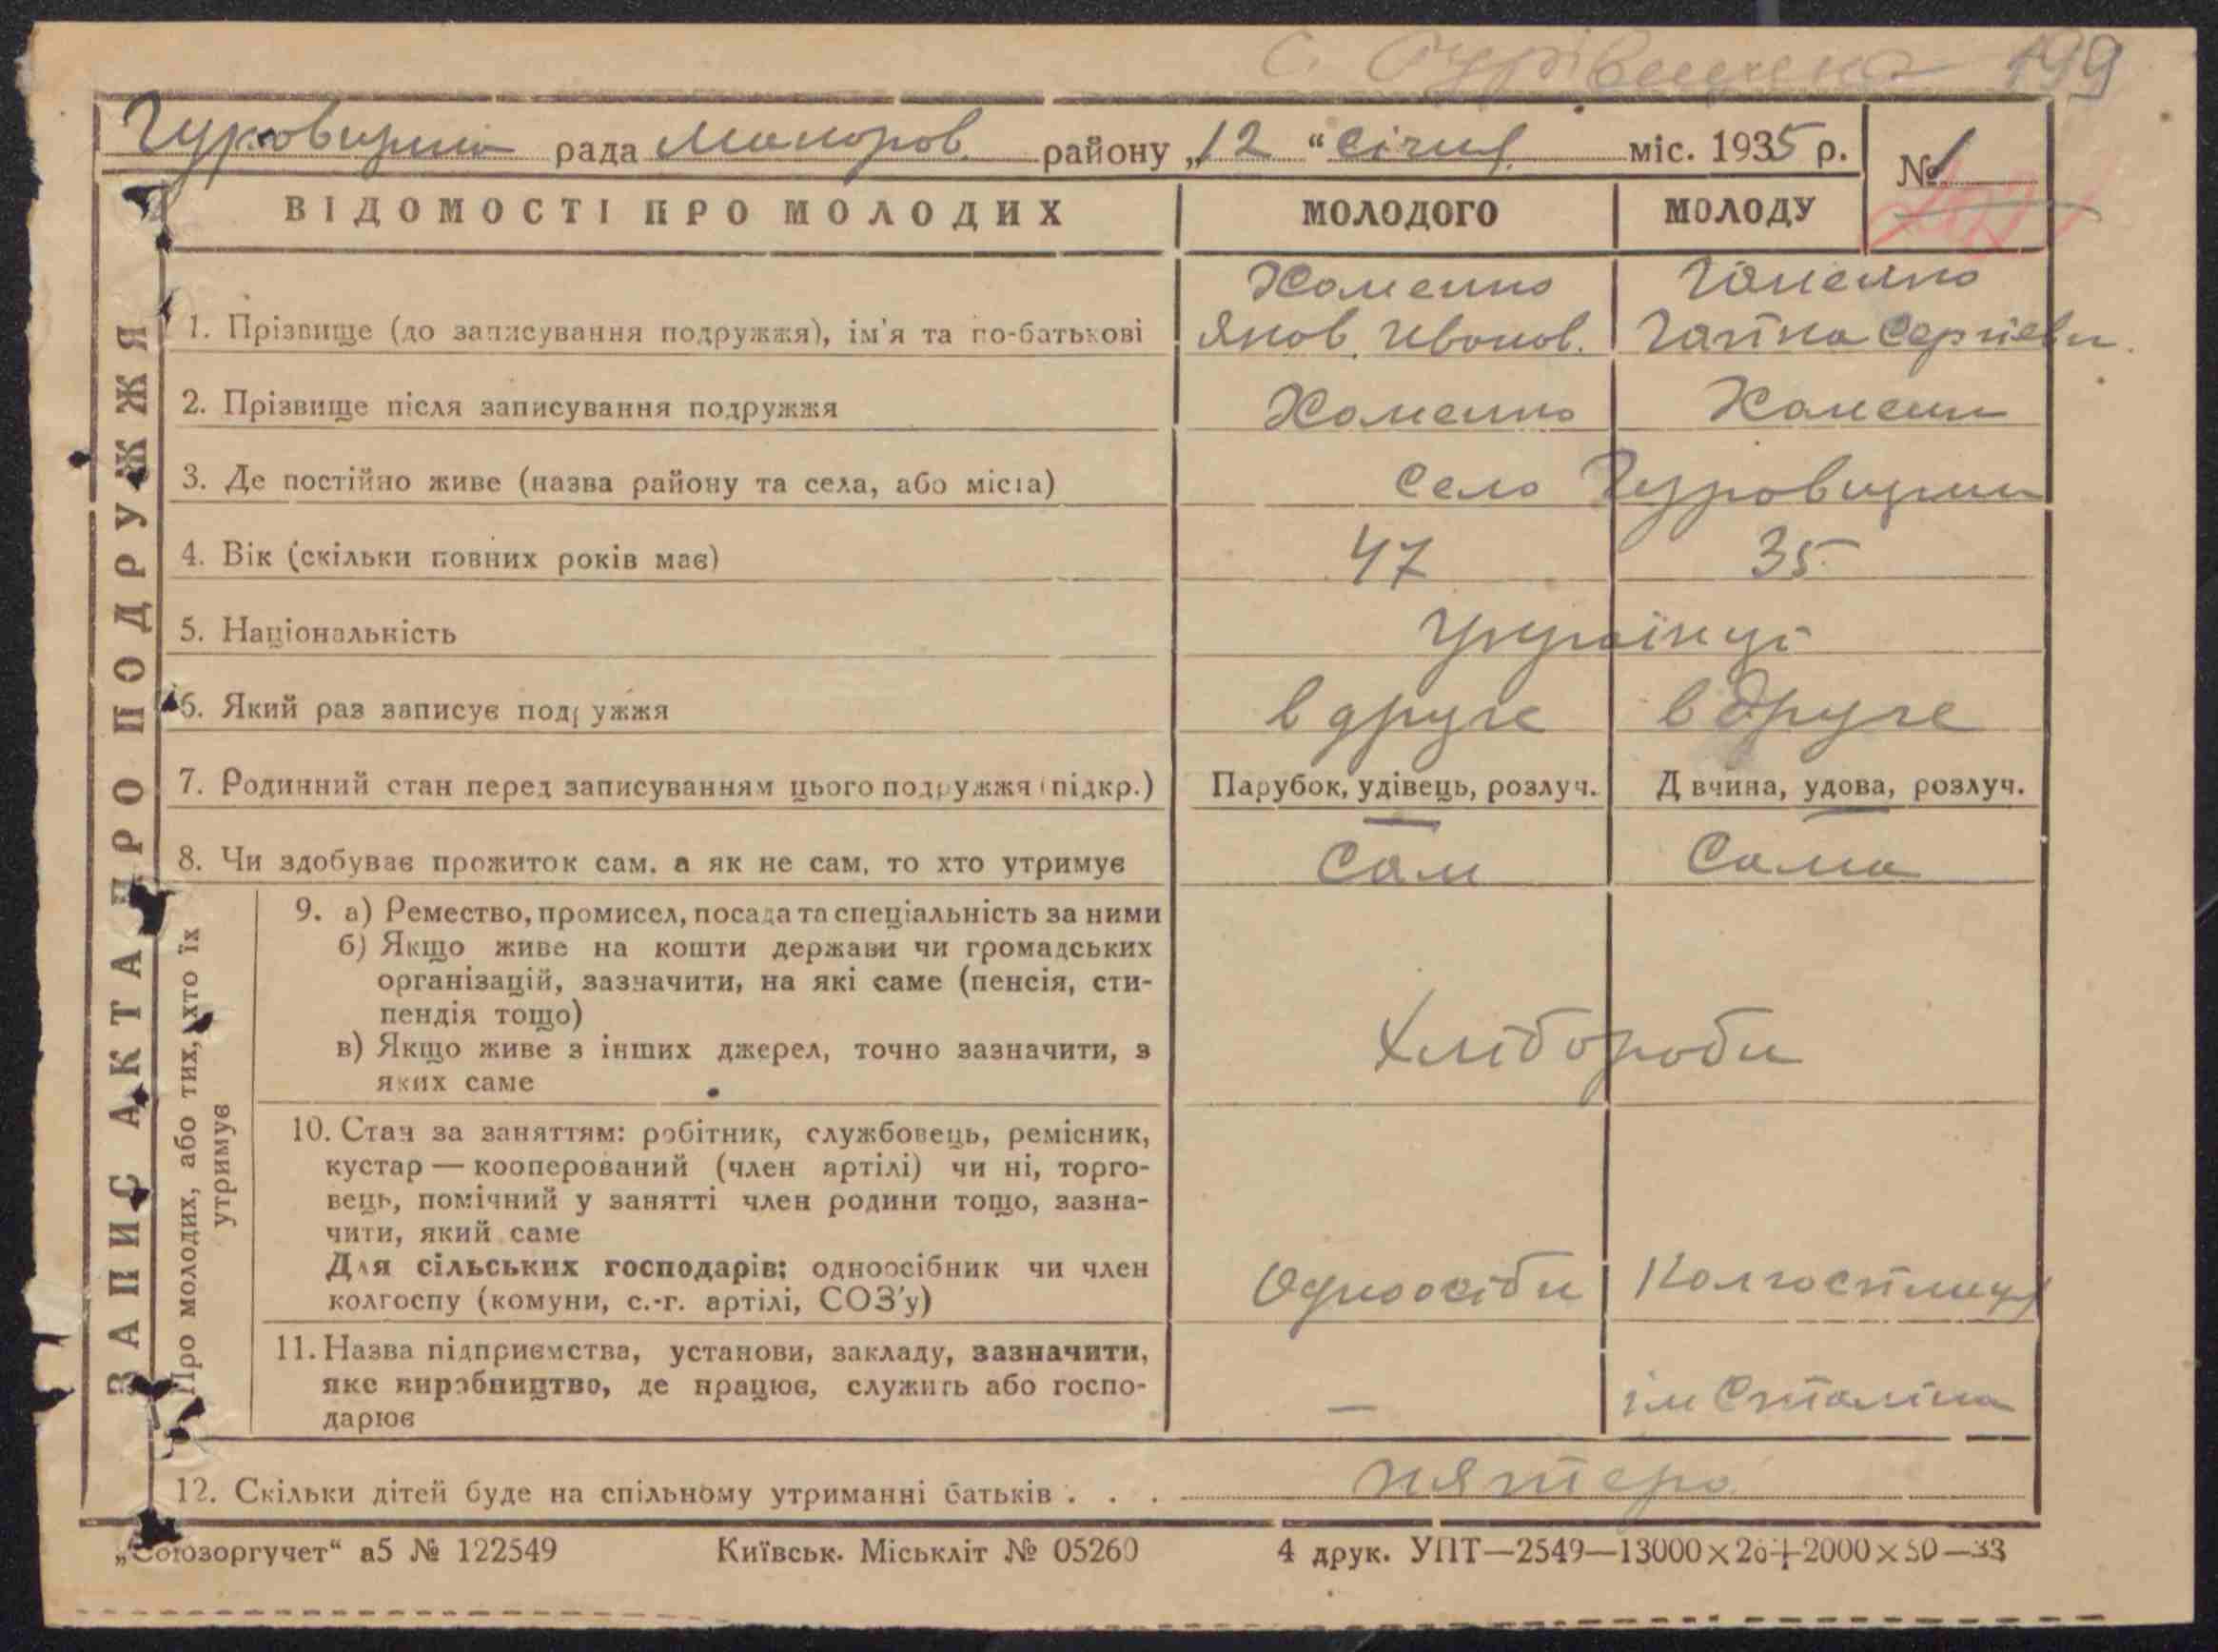 с. Гурівщина 199
Гуровщина рада Макоров. району „12“ Січня міс. 1935 р. № 1
ВІДОМОСТІ ПРО МОЛОДИХ МОЛОДОГО МОЛОДУ
Хоменко
1. Прізвище (до записування подружжя), ім'я та по-батькові Яков Ивонов. Ганна Сергієвн.
2. Прізвище після записування подружжя Хоменко Хоменко
3. Де постійно живе (назва району та села, або міста) Село Гуровщина
4. Вік (скільки повних років має) 47 35
5. Національність Українці
6. Який раз записує подружжя вдруге вдруге
7. Родинний стан перед записуванням цього подружжя (підкр.) Парубок, удівець, розлуч. Д вчина, удова, розлуч.
8. Чи здобуває прожиток сам, а як не сам, то хто утримує Сам Сама
9. а) Ремество, промисел, посада та спеціальність за ними
б) Якщо живе на кошти держави чи громадських
організацій, зазначити, на які саме (пенсія, сти-
пендія тощо)
в) Якщо живе з інших джерел, точно зазначити, з
яких саме
Хлібороби
10. Стан за заняттям: робітник, службовець, ремісник,
кустар — кооперований (член артілі) чи ні, торго-
вець, помічний у занятті член родини тощо, зазна-
чити, який саме
Для сільських господарів: одноосібник чи член
колгоспу (комуни, с.-г. артілі, СОЗ'у)
Одноосібн Колгоспниця
11. Назва підприємства, установи, закладу, зазначити,
яке виробництво, де працює, служить або госпо-
дарює
— ім Сталіна
12. Скільки дітей буде на спільному утриманні батьків . . . пятеро
„Союзоргучет“ а5 № 122549 Київськ. Міськліт № 05260 4 друк. УПТ—2549—13000×20+2000×50—33
ЗАПИС АКТА ПРО ПОДРУЖЖЯ
Про молодих, або тих, хто їх
утримує